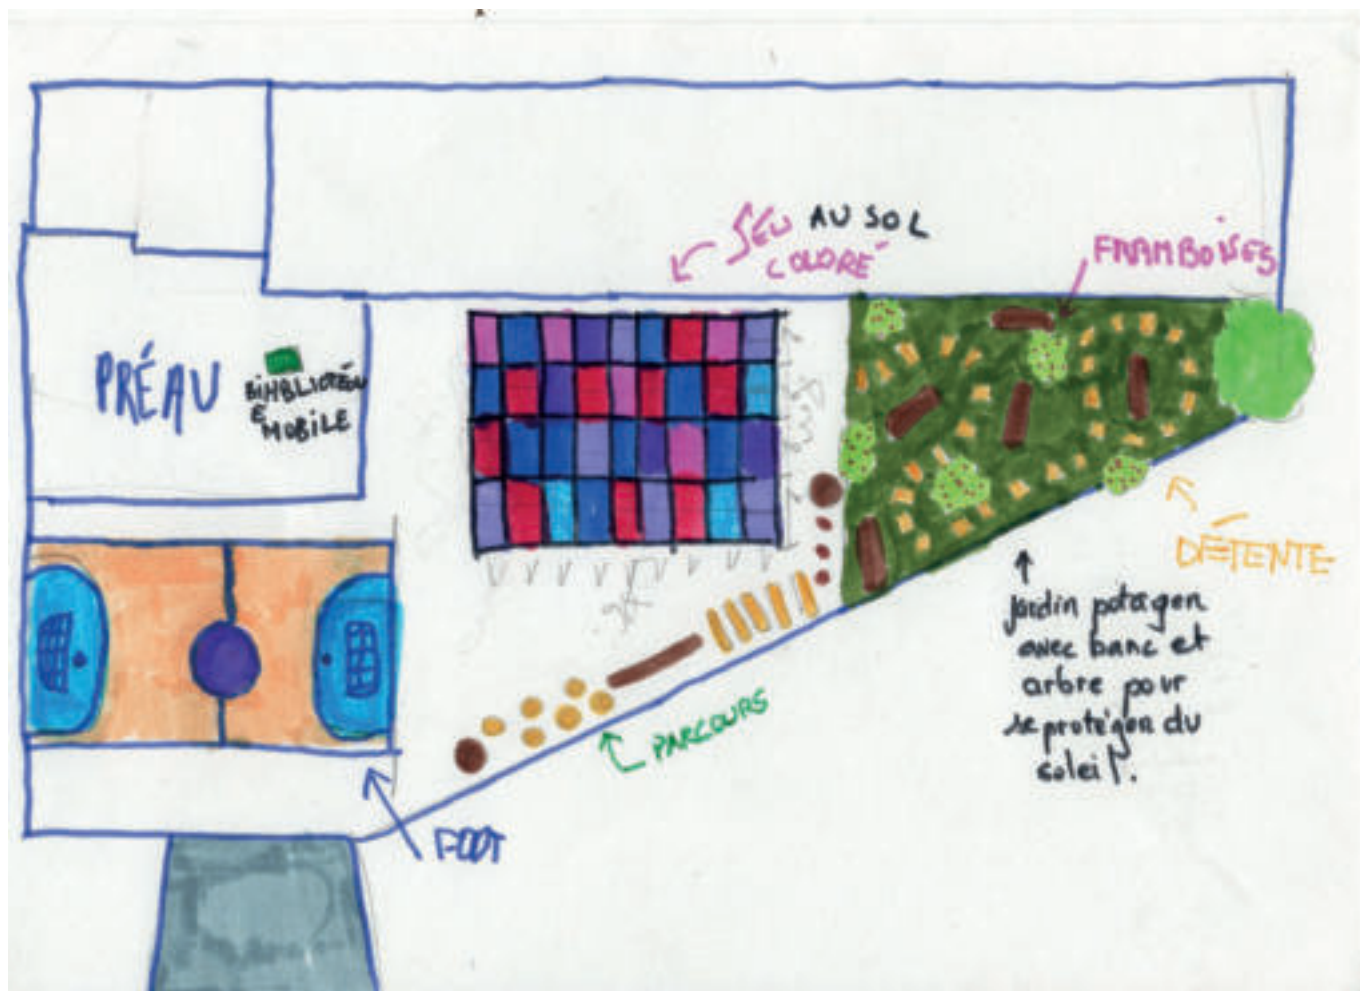 JEU AU SOL
COLORÉ
FRAMBOISES
PRÉAU
BIHBLIOTÉQU
E
MOBILE
DÉTENTE
Jardin potager
avec banc et
arbre pour
se protéger du
soleil.
PARCOURS
FOOT